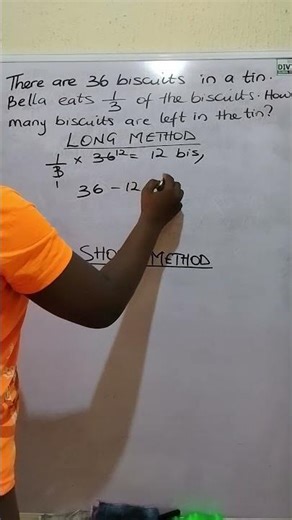 There are 36 biscuits in a tin.
Bella eats 1/3 of the biscuits. How
many biscuits are left in the tin?
LONG METHOD
1/3 x 36 12 = 12 bis,
1
36 - 12
METHOD